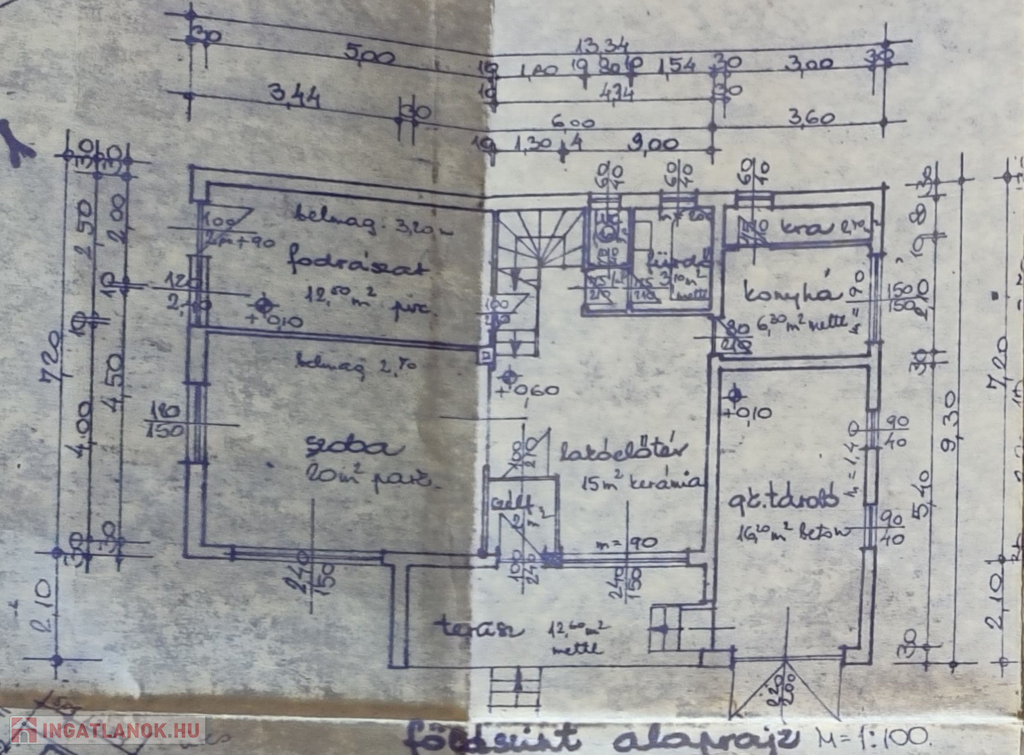 13,34
30 5,00 10 1,80 10 90 10 1,54 30 3,00 30
10 4,74 30
3,44 30
6,00 3,60
10 1,30 4 9,00
60/40 60/40 60/40
30 30
2,50 2,00
10 10
720
4,00 4,50
30 30
2,10
100
2m+90
120
180
150
belmag. 3,20 m
fodrászat
12,60 m² pvc.
+0,10
belmag 2,70
szoba
20 m² park.
+0,60
100
210
lakóelőtér
15 m² kerámia
szélf.
m=90
100
240
240
150
240
150
terasz 12,60 m²
mettl
fürdő
mettl
kra
konyhá
6,20 m² mettl
80
210
+0,10
gk. tároló
16,20 m² beton
90
40
90
40
150
h=1,40
220
200
30
2,10
30
5,40
30
9,30
7,20
2,10
INGATLANOK.HU
földszint alaprajz M=1:100.